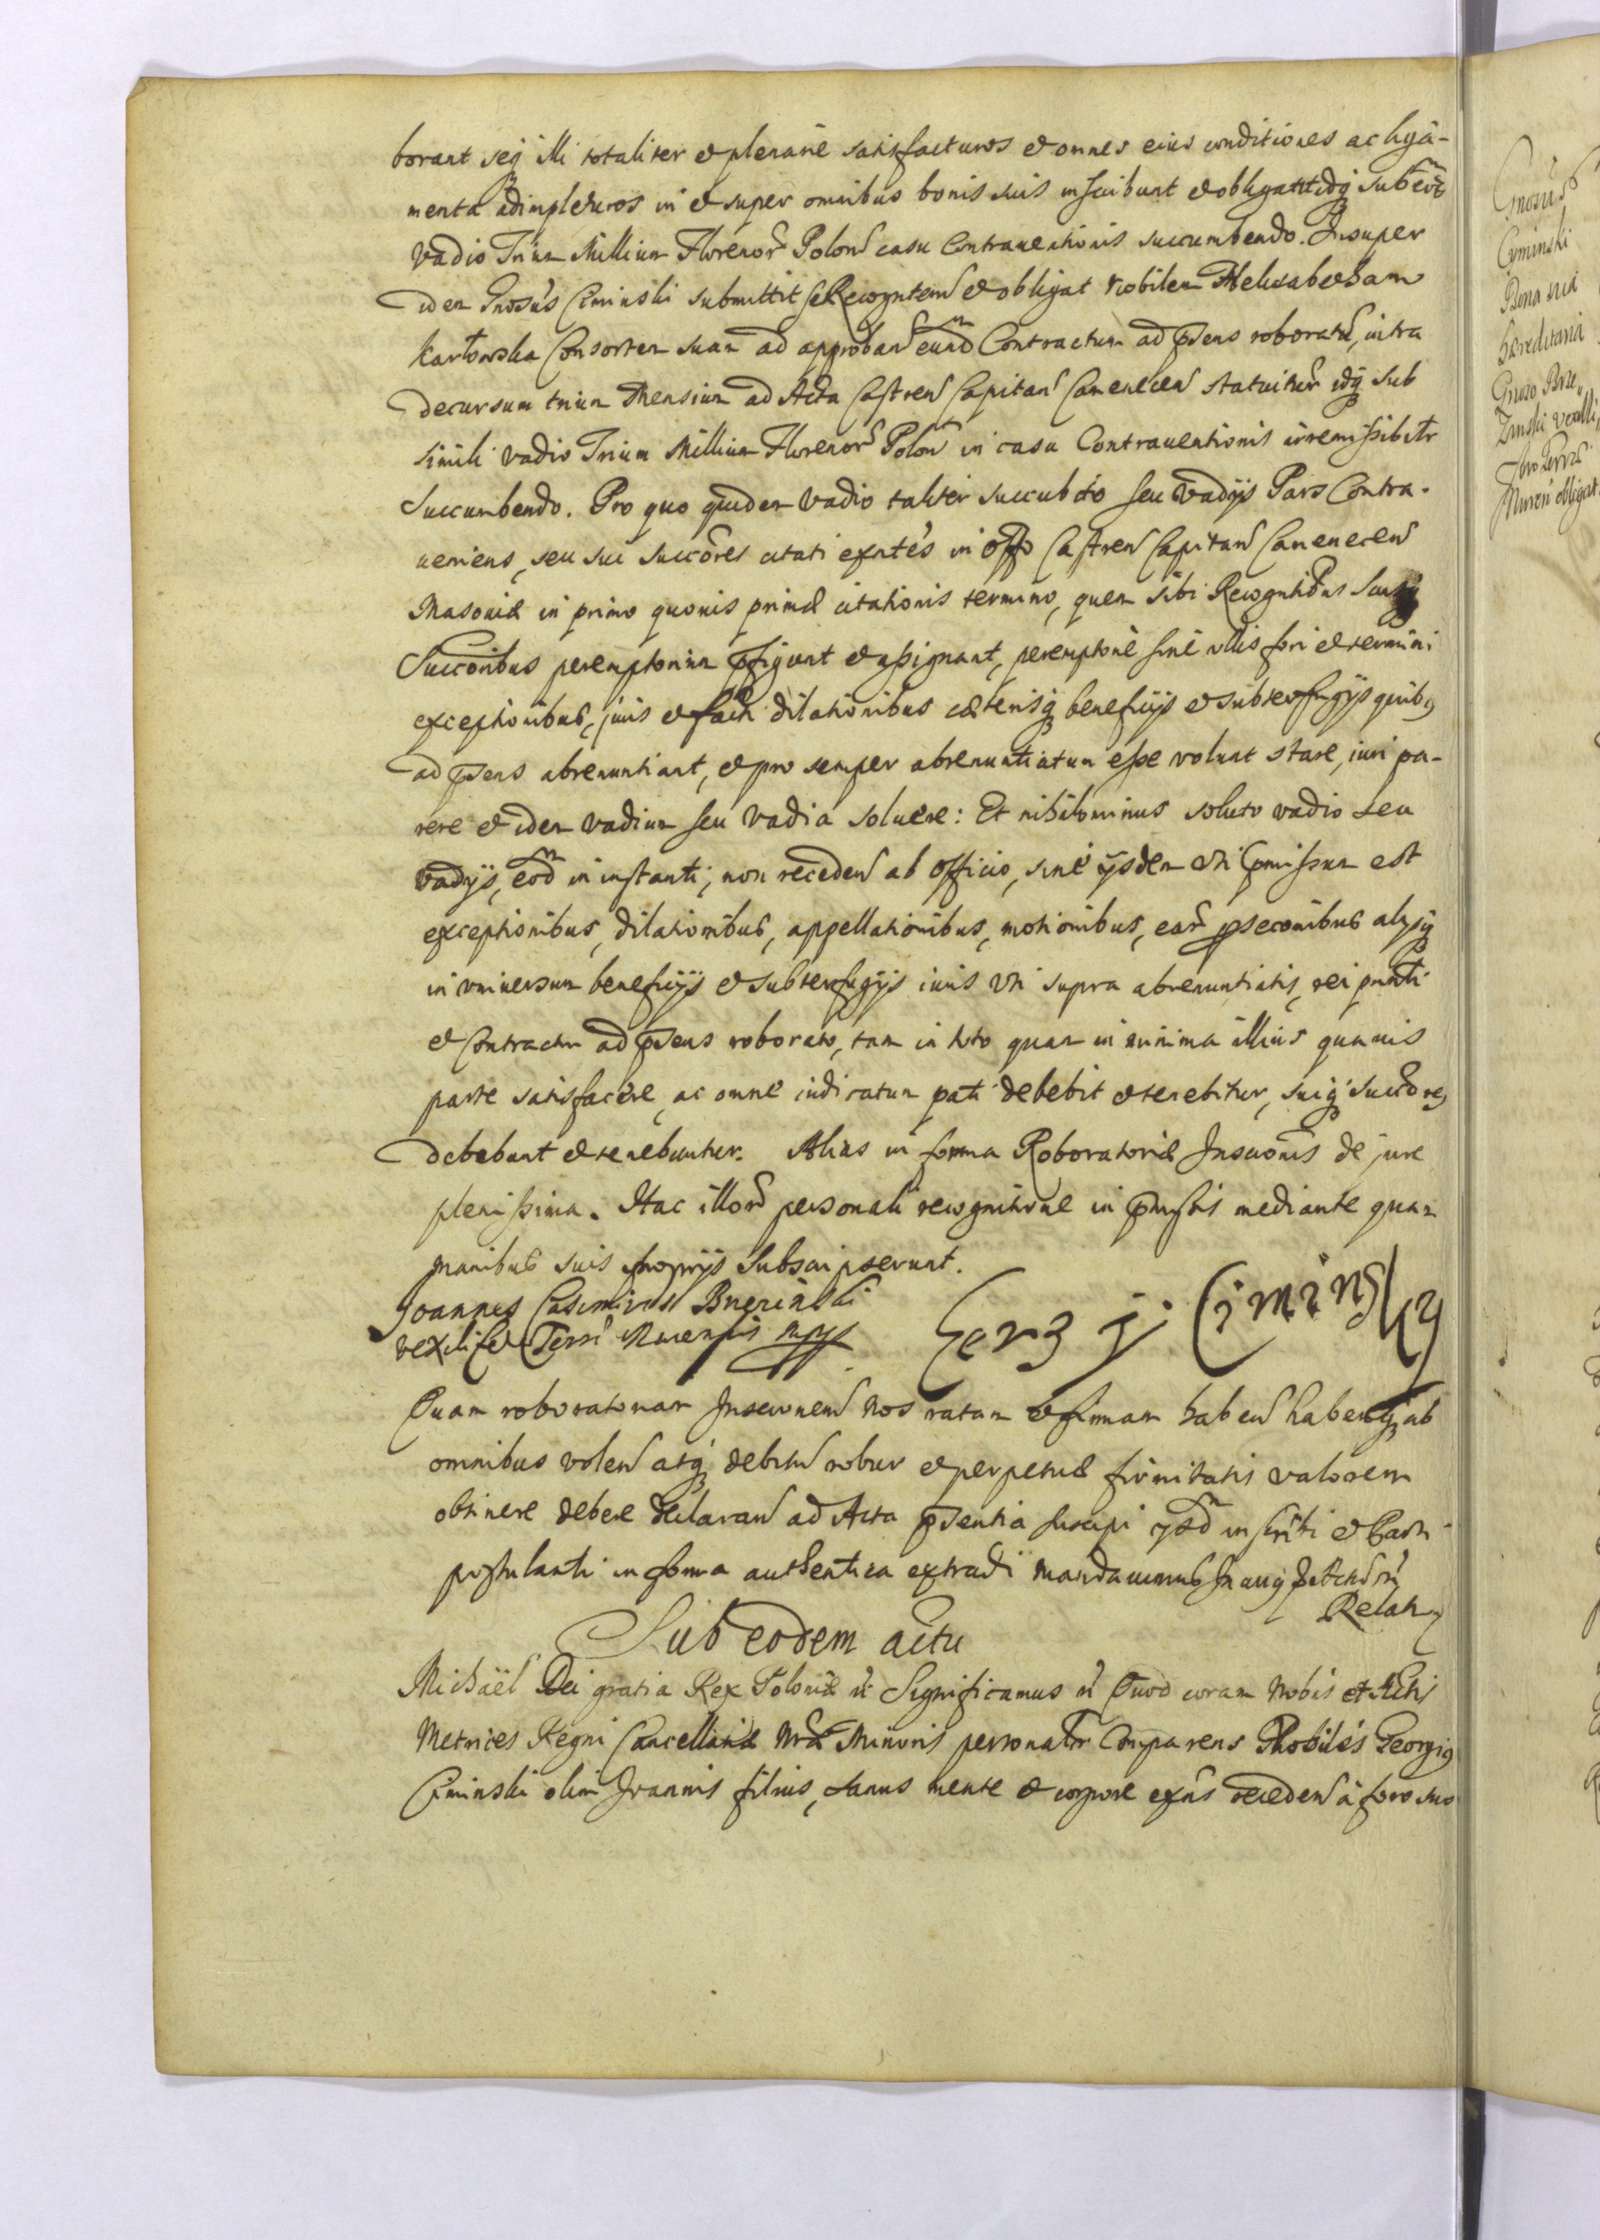 borant seq illi totaliter et plenarie satisfacturos et omnes eius conditiones ac liga-
menta adimpleturos in et super omnibus bonis suis inscribunt et obligant idq sub
vadio Trium Millium Floreno͠r Polon casu Contrauentionis succumbendo. Insuper
idem Gnosus Ciminski submittit se Recogntem et obligat nobilem Helisabetham
Karłowska Consortem suam ad approban eund Contractum ad pñs roboratū, intra
decursum trium Mensium ad Acta Castren Capitan Camenecen statuitur idq sub
simili vadio Trium Millium Florenor Polon in casu Contrauentionis irremissibilr
succumbendo. Pro quo quidem vadio taliter succubito seu vadijs Pars Contra-
ueniens, seu sui succores citati exñtes in Offo Castren Capitan Camenecen
Masouiæ in primo quouis primæ citationis termino, quem sibi Recogntibus suisq
Succoribus peremptorium pfigunt et assignant, peremptorie sine ullis fori et termini
exceptionibus, juris et facti dilationibus cæterisq beneficijs et subterfugijs quibus
ad pñs abrenuntiant, et pro semper abrenuntiatum esse volunt stare, iuri pa-
rere et idem vadium seu vadia soluere: Et nihilominus soluto vadio seu
vadijs, eod in instanti, non receden ab officio, sine ijsdem uti pmissum est
exceptionibus, dilationibus, appellationibus, motionibus, ear psecōnibus alysq
in vniuersum beneficijs et subterfugijs iuris uti supra abrenuntiatis, rei pnti
et Contractui ad pñs roborato, tam in toto quam in minima illius quauis
parte satisfacere, ac omne iudicatum pati debebit et tenebitur, suiq succores
debebunt et tenebuntur. Alias in forma Roboratoriæ Inscrōnis de jure
plenissima. Hac illor personali recognitione in pmissis mediante quam
manibus suis proprijs Subscripserunt.
Joannes Casimirus Brzezinski
vexilifer Terrę Nurensis mpp
Jerzy J Ciminsky
Quam roboratoriam Inscronem Nos ratam et firmam haben haberiq ab
omnibus volen atq debitu robur et perpetuæ firmitatis valorem
obtinere debere declaran ad Acta pñtia suscipi ijsd inscribi et Parti
postulanti in forma authentica extradi mandauimus In cuius
Relatio
Sub eodem actu
Michaël Dei gratia Rex Poloniæ etc Significamus etc Quod coram Nobis et Actis
Metrices Regni Cancellariæ Nræ Minoris personalr Comparens Nobilis Georgius
Ciminski olim Joannis filius, sanus mente et corpore exñs receden à foro suo
Gnosus
Cyminski
Bona sua
hæreditaria
Gnoso Brze-
zinski vexilli
Nuren obligat.